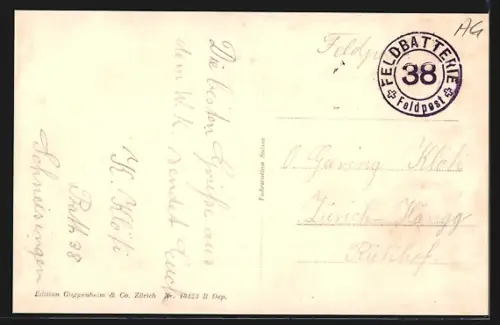 Die besten Grüße aus
dem W.K. sendet Euch
K. Klöti
Batt. 38
Schneisingen
Feldpost
AG
FELDBATTERIE
38
Feldpost
Klöti
Zürich-Höngg
Edition Guggenheim & Co. Zürich Nr. 13423 B Dep.